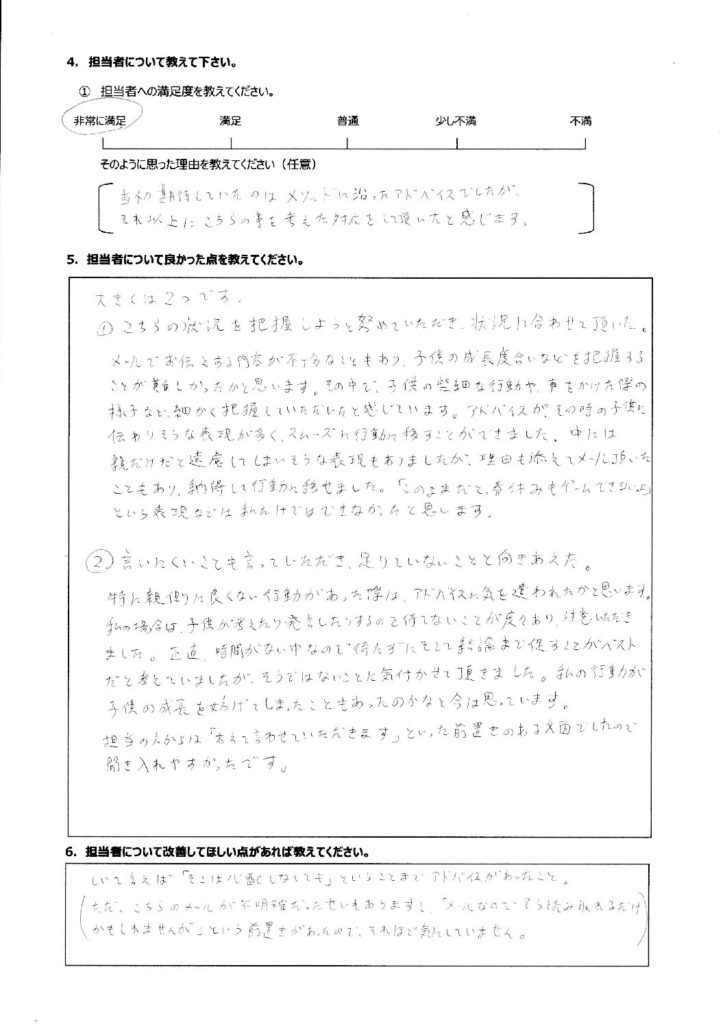 4. 担当者について教えて下さい。
① 担当者への満足度を教えてください。
非常に満足 満足 普通 少し不満 不満
そのように思った理由を教えてください（任意）
当初期待していたのはメソッドに沿ったアドバイスでしたが、
それ以上にこちらの事を考えた対応をして頂いたと感じます。
5. 担当者について良かった点を教えてください。
大きくは2つです。
① こちらの状況を把握しようと努めていただき、状況に合わせて頂いた。
メールでお伝えする内容が不十分なこともあり、子供の成長度合いなどを把握する
ことが難しかったかと思います。その中で、子供の些細な行動や、声をかけた際の
様子など、細かく把握していただいたと感じています。アドバイスが、その時の子供に
伝わりそうな表現が多く、スムーズに行動に移すことができました。中には
親だけだと遠慮してしまいそうな表現もありましたが、理由も添えてメール頂いた
こともあり、納得して行動に移せました。「このままだと、春休みもゲームできないよ」
という表現などは私だけではできなかったと思します。
② 言いにくいことも言っていただき、足りていないことと向きあえた。
特に親側に良くない行動があった際は、アドバイスに気を遣われたかと思います。
私の場合は、子供が考えたり発言したりするので待てないことが度々あり、注意いただき
ました。正直、時間がない中なので待たずに結論まで促すことがベスト
だと考えていましたが、そうではないことに気付かせて頂きました。私の行動が
子供の成長を妨げてしまったこともあったのかなと今は思っています。
担当の方からは「あえて言わせていただきます」といった前置きのある文面でしたので
聞き入れやすかったです。
6. 担当者について改善してほしい点があれば教えてください。
しいて言えば「そこは心配しなくても」ということまでアドバイスがあったこと。
(ただ、こちらのメールが不明確だったせいもありますし、「メールなのでそう読み取れるだけ
かもしれませんが」という前置きがあったので、それほど気にしていません。)